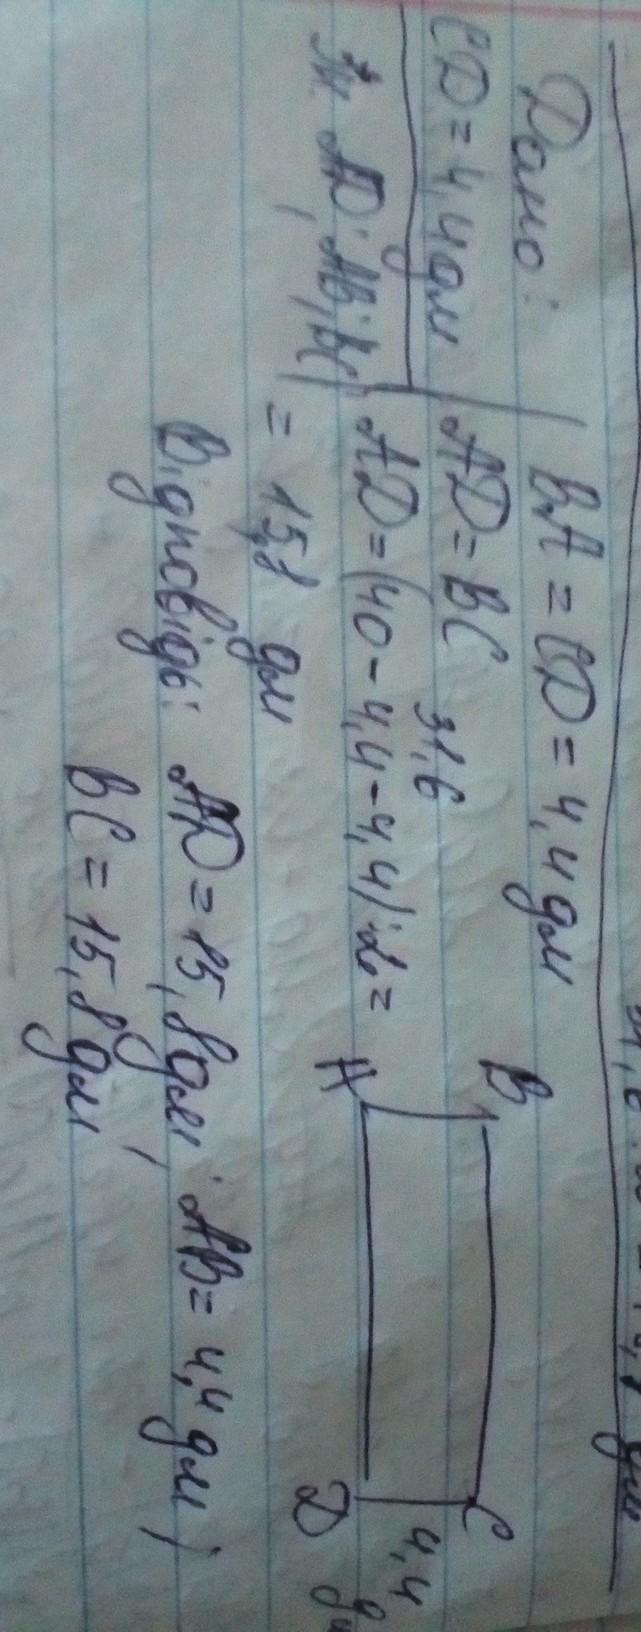 Дано:
CD = 4,4 дм
Зн. AD; AB; BC
BA = CD = 4,4 дм
AD = BC
31,6
AD = (40 - 4,4 - 4,4) : 2 =
= 15,8 дм
Відповідь: AD = 15,8 дм; AB = 4,4 дм;
BC = 15,8 дм
B
C
A
D
4,4